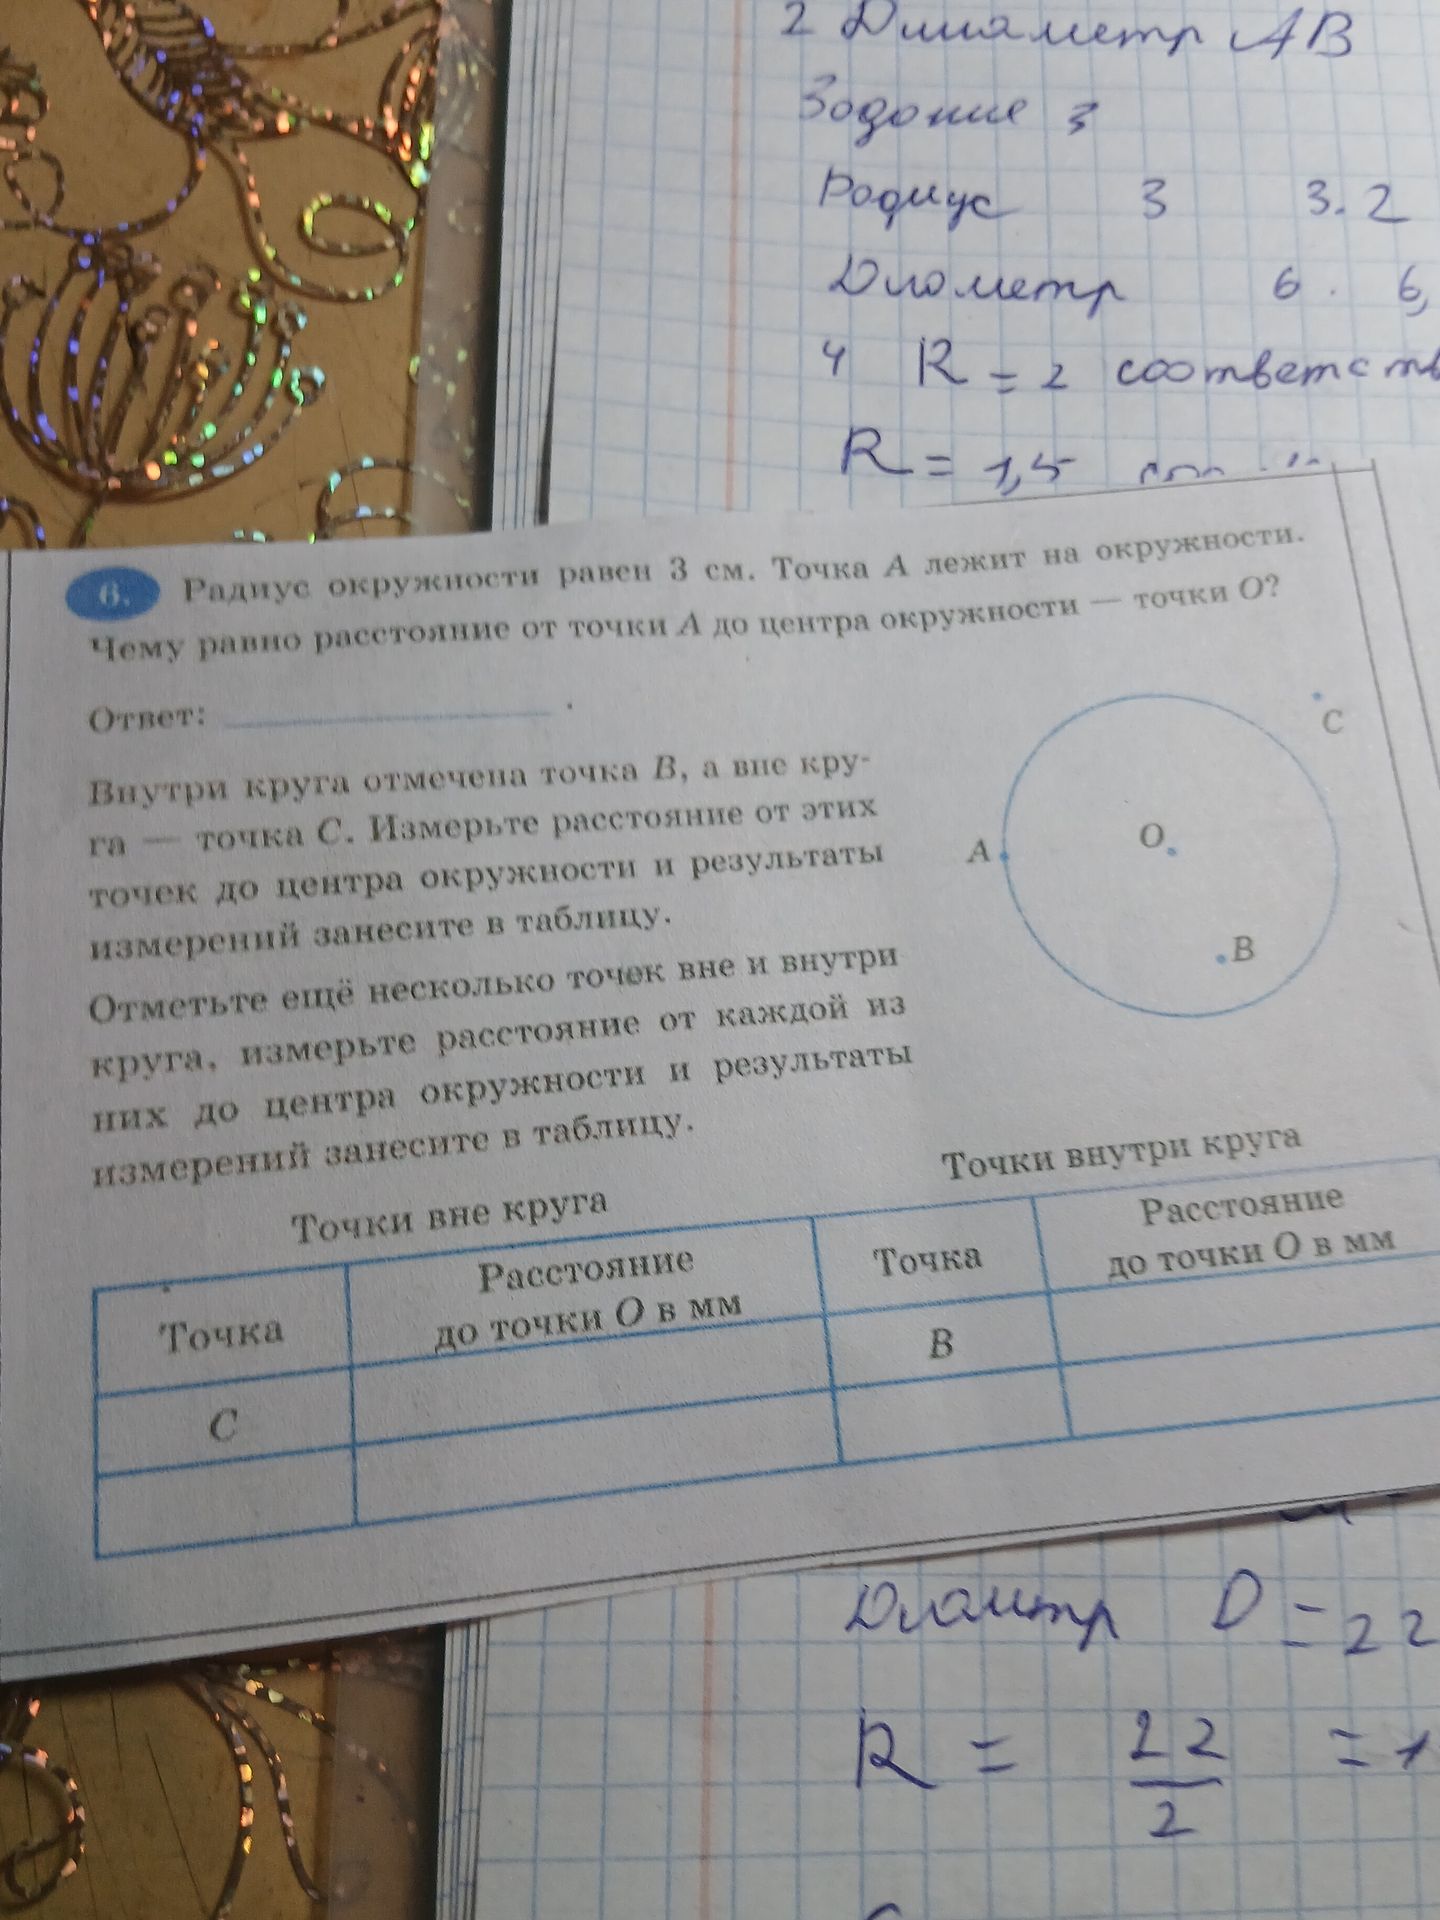 2 Диаметр AB
Зодоние 3
Родиус 3 3.2
Диометр 6. 6,
4 R = 2 соответств
R = 1,5
6. Радиус окружности равен 3 см. Точка A лежит на окружности.
Чему равно расстояние от точки A до центра окружности — точки O?
Ответ: .
Внутри круга отмечена точка B, а вне кру-
га — точка C. Измерьте расстояние от этих
точек до центра окружности и результаты
измерений занесите в таблицу.
Отметьте ещё несколько точек вне и внутри
круга, измерьте расстояние от каждой из
них до центра окружности и результаты
измерений занесите в таблицу.
C
O
A
B
Точки вне круга
Точки внутри круга
Точка
Расстояние
до точки O в мм
Точка
Расстояние
до точки O в мм
C
B
D = 22
R = 22/2 =